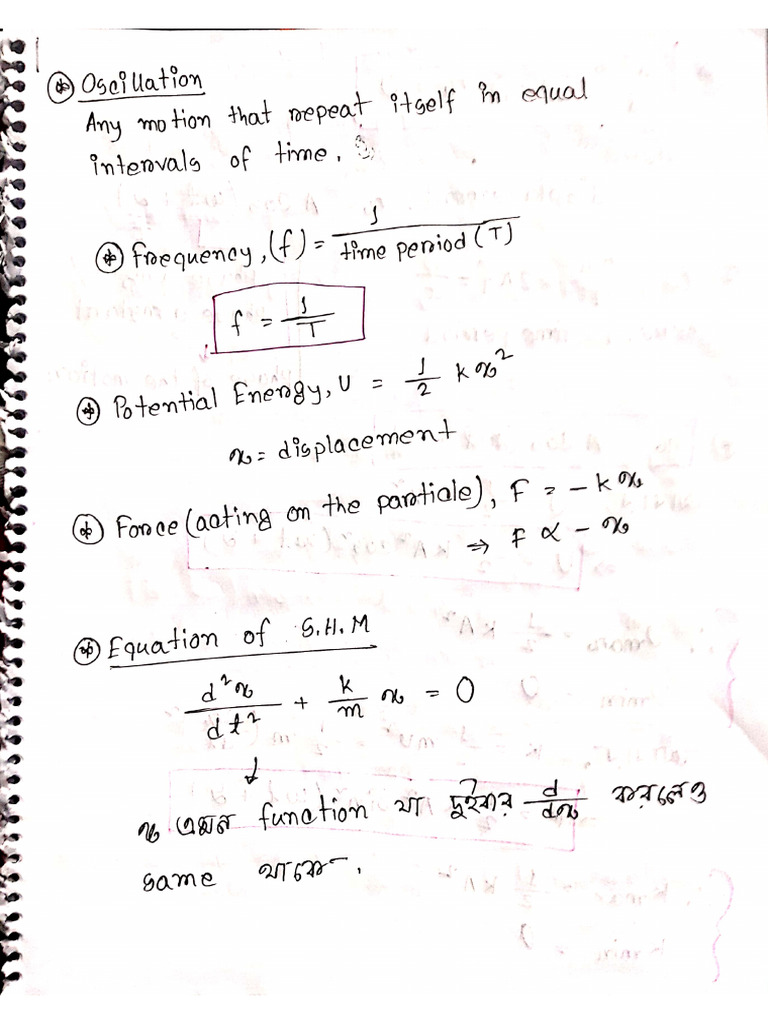 Oscillation
Any motion that repeat itself in equal
intervals of time.
Frequency, (f) = 1 / time period (T)
f = 1/T
Potential Energy, U = 1/2 kx²
x = displacement
Force (acting on the particle), F = -kx
⇒ F ∝ -x
Equation of S.H.M
d²x/dt² + k/m x = 0
↓
x এমন function যা দুইবার d/dx করলেও
same থাকে.